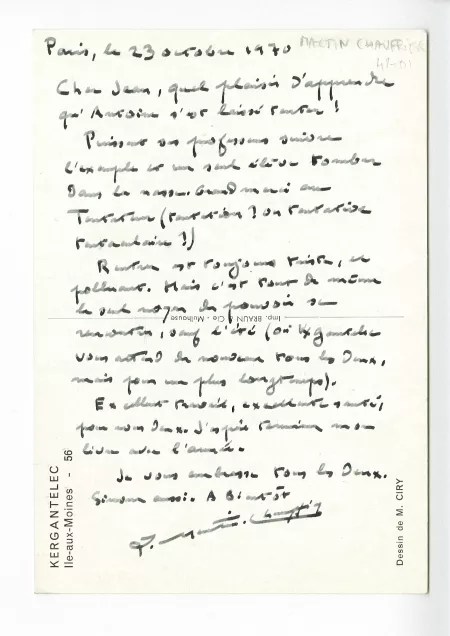 Paris, le 23 octobre 1970
MARTIN CHAUFFIER
Cher Jean, quel plaisir d'apprendre
qu'Antoine s'est laissé tenter !
Puissent ses professeurs suivre
l'exemple et un seul élève tomber
dans la nasse. Grand merci au
Tentateur (tentation ? ou tentative
tentaculaire ?)
Rentrer est toujours triste, et
polluant. Mais c'est tout de même
le seul moyen de pouvoir se
Imp. BRAUN & Cie - Mulhouse
rencontrer, sauf l'été (où Kergantelec
vous attend de nouveau tous les deux,
mais pour un plus longtemps).
Excellent travail, excellente santé,
pour vous deux. J'espère terminer mon
livre avec l'année.
Je vous embrasse tous les deux.
Simone aussi. A Bientôt
L. Martin-Chauffier
KERGANTELEC
Ile-aux-Moines - 56
Dessin de M. CIRY